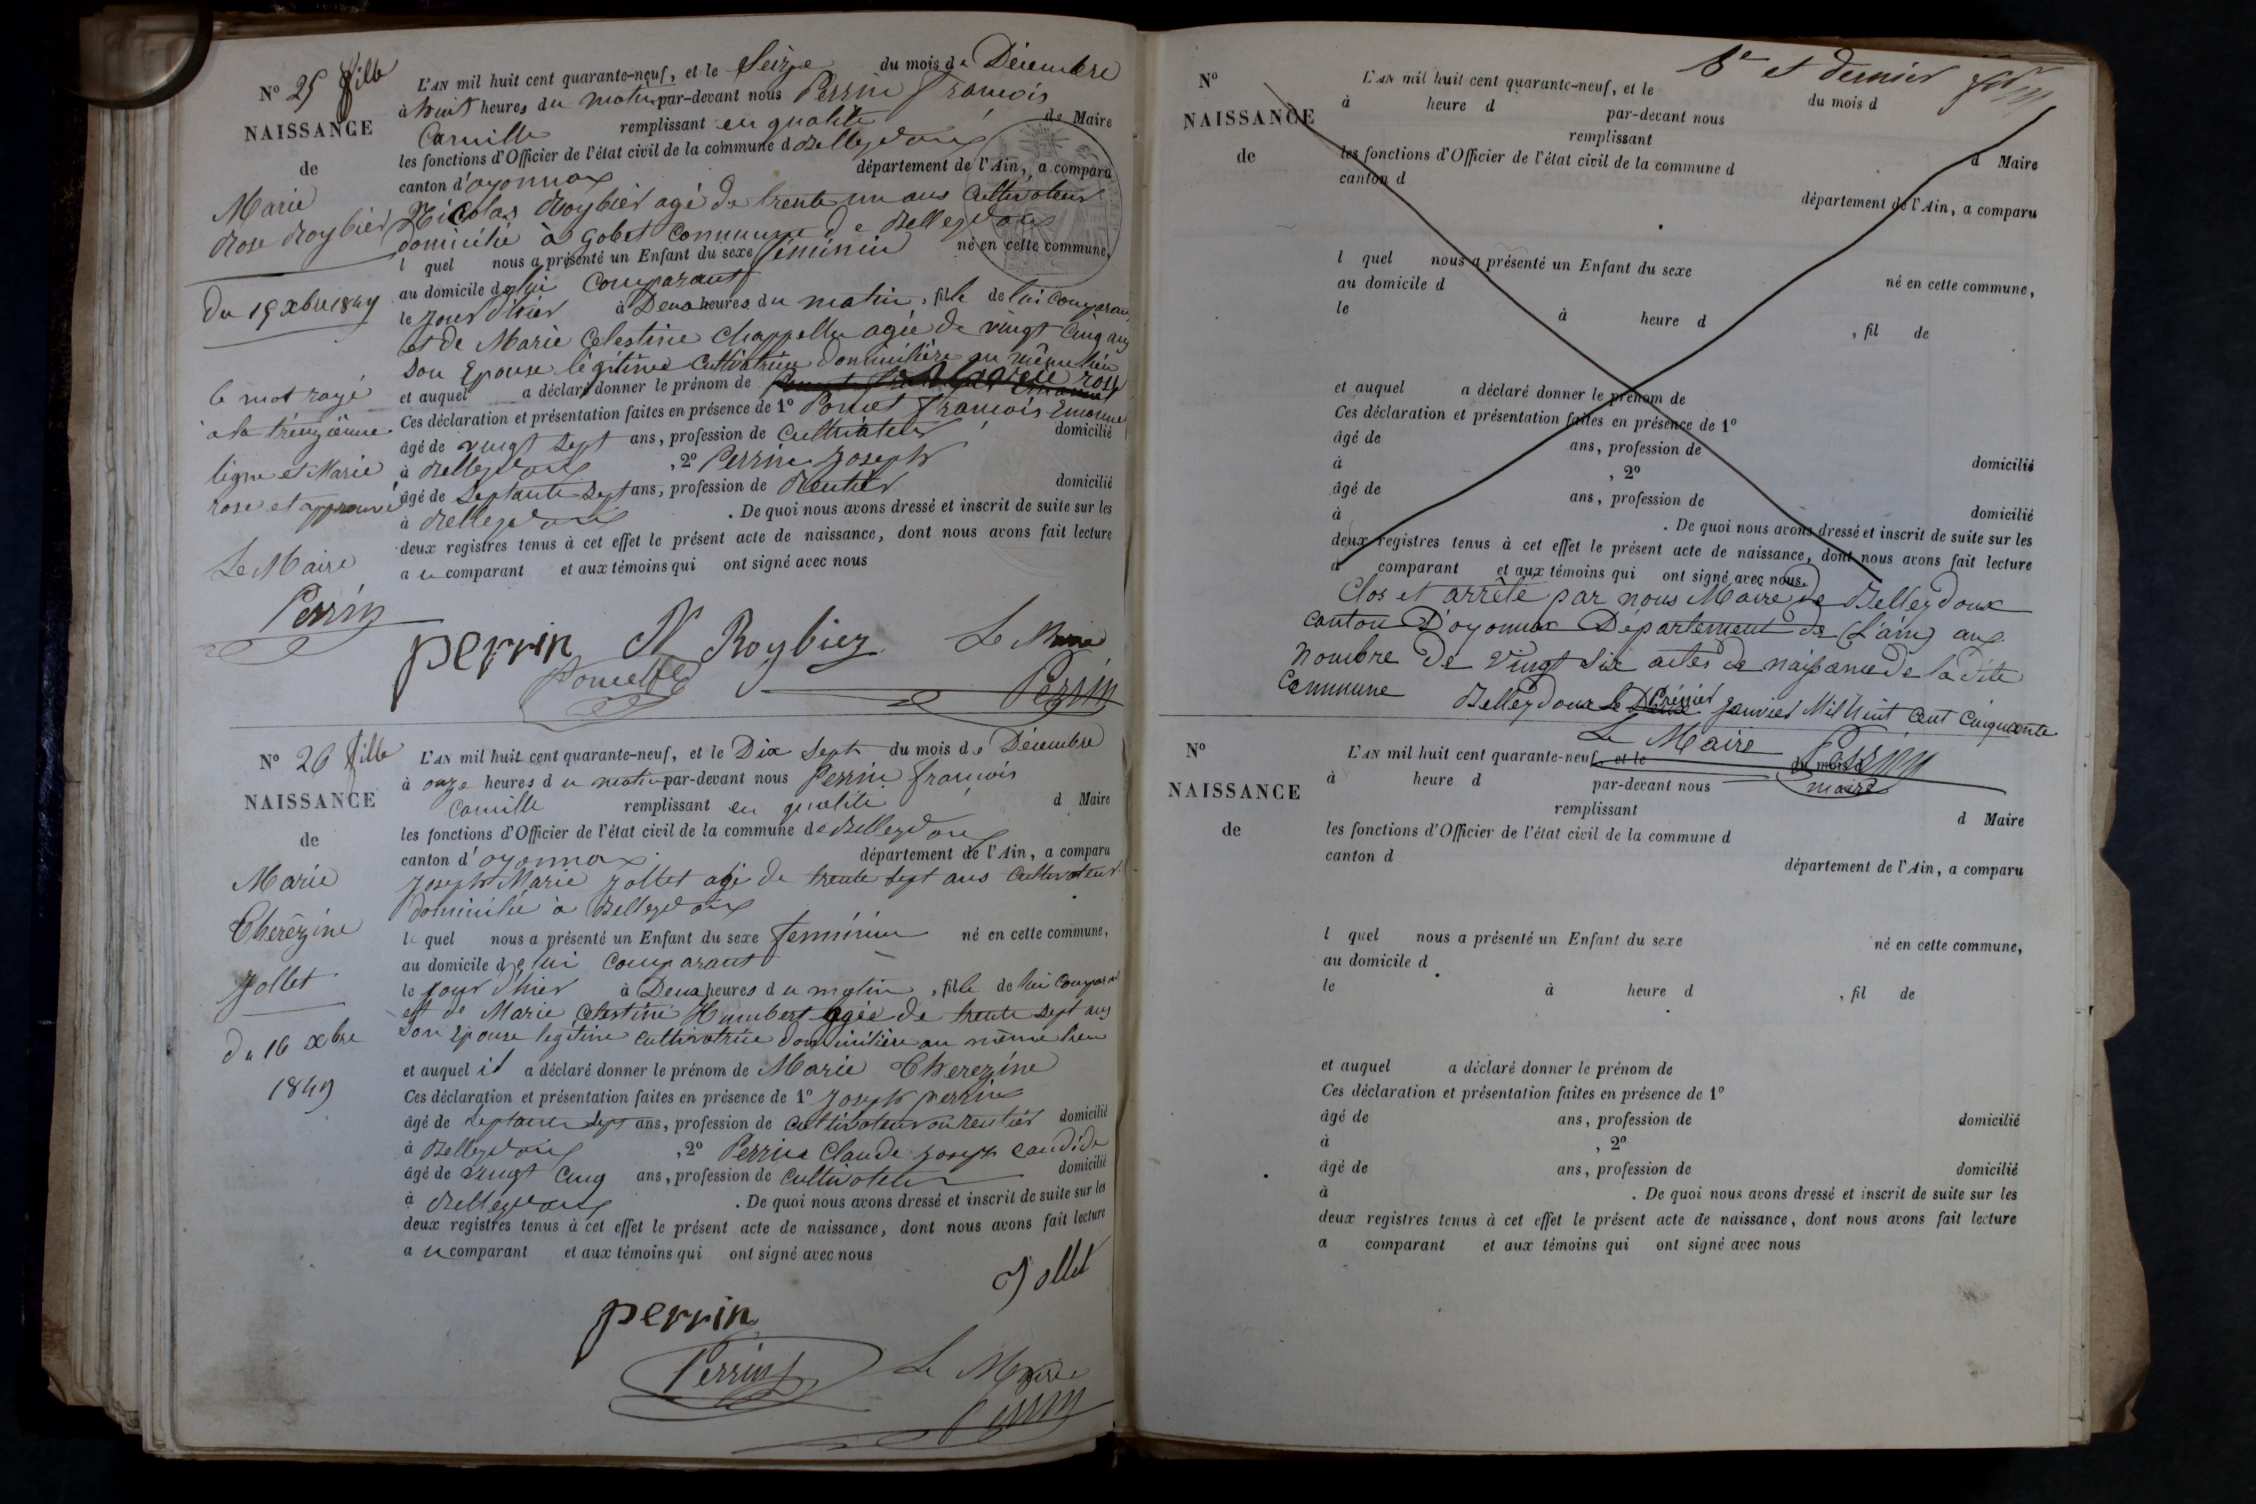 N° 25 fille
NAISSANCE
de
Marie
Rose Roybier
Du 15 xbre 1849
le mot rayé
à la treizième
ligne et Marie
rose et approuvé
Le Maire
Perrin
L'AN mil huit cent quarante-neuf, et le Seize du mois de Décembre
à huit heures du matin par-devant nous Perrin françois
Camille remplissant en qualité de Maire
les fonctions d'Officier de l'état civil de la commune d Belleydoux
canton d'oyonnax département de l'Ain, a comparu
Nicolas Roybier agé de trente un ans Cultivateur
domicilié à Gobet Commune de Belleydoux
l quel nous a présenté un Enfant du sexe féminin né en cette commune,
au domicile de lui Comparant
le jour d'hier à Deux heures du matin, fille de lui Comparant
et de Marie Celestine Chappellu agée de vingt Cinq ans
Son Epouse légitime Cultivatrice domicilière au même lieu
et auquel a déclaré donner le prénom de Marie rose
Ces déclaration et présentation faites en présence de 1° Poncet françois Emanuel
âgé de vingt Sept ans, profession de Cultivateur domicilié
à Belleydoux, 2° Perrin Joseph
âgé de Septante Sept ans, profession de Rentier domicilié
à Belleydoux. De quoi nous avons dressé et inscrit de suite sur les
deux registres tenus à cet effet le présent acte de naissance, dont nous avons fait lecture
a u comparant et aux témoins qui ont signé avec nous
perrin N Roybier Le Maire
Poncet Perrin
N° 26 fille
NAISSANCE
de
Marie
Therézine
Jollet
du 16 xbre
1849
L'AN mil huit cent quarante-neuf, et le Dix Sept du mois de Décembre
à onze heures du matin par-devant nous Perrin françois
Camille remplissant en qualité d Maire
les fonctions d'Officier de l'état civil de la commune de Belleydoux
canton d'oyonnax département de l'Ain, a comparu
Joseph Marie Jollet agé de trente sept ans Cultivateur
domicilié à Belleydoux
le quel nous a présenté un Enfant du sexe feminin né en cette commune,
au domicile de lui Comparant
le jour d'hier à Deux heures du matin, fille de lui Comparant
et de Marie Celestine Humbert agée de trente Sept ans
Son Epouse legitime cultivatrice domicilière au même lieu
et auquel il a déclaré donner le prénom de Marie Therezine
Ces déclaration et présentation faites en présence de 1° Joseph perrin
âgé de Septante Sept ans, profession de cultivateur ou rentier domicilié
à Belleydoux, 2° Perrin Claude Joseph Candide
âgé de vingt Cinq ans, profession de Cultivateur domicilié
à Belleydoux. De quoi nous avons dressé et inscrit de suite sur les
deux registres tenus à cet effet le présent acte de naissance, dont nous avons fait lecture
a u comparant et aux témoins qui ont signé avec nous
Jollet
perrin
Perrin Le Maire
Perrin
N°
NAISSANCE
de
et dernier
L'AN mil huit cent quarante-neuf, et le du mois d
à heure d par-devant nous
remplissant d Maire
les fonctions d'Officier de l'état civil de la commune d
canton d département de l'Ain, a comparu
l quel nous a présenté un Enfant du sexe né en cette commune,
au domicile d
le à heure d, fil de
et auquel a déclaré donner le prénom de
Ces déclaration et présentation faites en présence de 1°
âgé de ans, profession de domicilié
à, 2°
âgé de ans, profession de domicilié
à. De quoi nous avons dressé et inscrit de suite sur les
deux registres tenus à cet effet le présent acte de naissance, dont nous avons fait lecture
a comparant et aux témoins qui ont signé avec nous.
Clos et arrêté par nous Maire de Belleydoux
canton D'oyonnax Département de (L'ain) au
Nombre De Vingt Six actes de naissance de la dite
Commune Belleydoux Le Prémier janvier Mil Huit Cent Cinquante
Le Maire Perrin
maire
N°
NAISSANCE
de
L'AN mil huit cent quarante-neuf, et le du mois d
à heure d par-devant nous
remplissant d Maire
les fonctions d'Officier de l'état civil de la commune d
canton d département de l'Ain, a comparu
l quel nous a présenté un Enfant du sexe né en cette commune,
au domicile d
le à heure d, fil de
et auquel a déclaré donner le prénom de
Ces déclaration et présentation faites en présence de 1°
âgé de ans, profession de domicilié
à, 2°
âgé de ans, profession de domicilié
à. De quoi nous avons dressé et inscrit de suite sur les
deux registres tenus à cet effet le présent acte de naissance, dont nous avons fait lecture
a comparant et aux témoins qui ont signé avec nous